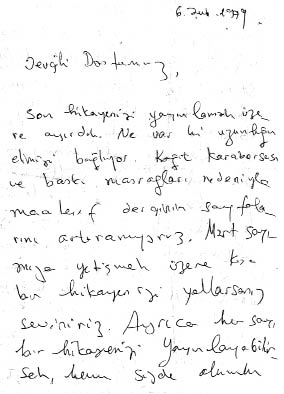 6. Şub. 1979.
Sevgili Dostumuz,
Son hikayenizi yayınlamak üze
re ayırdık. Ne var ki uzunluğu
elimizi bağlıyor. Kağıt karaborsası
ve baskı masrafları nedeniyle
maalesef derginin sayfala
rını artıramıyoruz. Mart sayı
mıza yetişmek üzere kısa
bir hikayenizi yollarsanız
seviniriz. Ayrıca her sayı
bir hikayenizi yayınlayabilir
sek, hem sizde olumlu